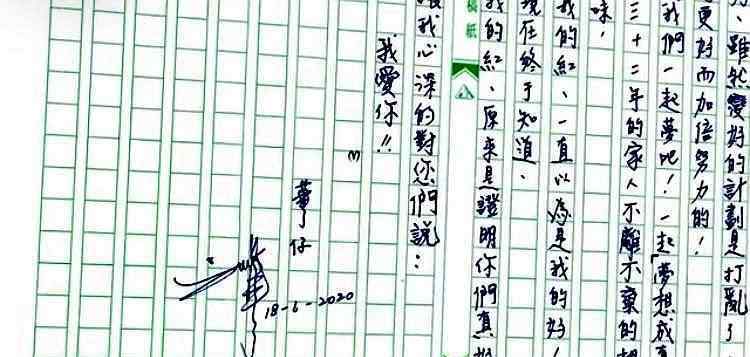 雖然變好的計劃是打亂了
更好而加倍努力的！
我們一起夢吧！一起「夢想成真
味，
三十二年的家人不離不棄的
我的紅、一直以為是我的好
現在終于知道、
我的紅、原來是證明你們真好
我心深的對您們說：
我愛你!!
仔
18-6-2020
稿紙